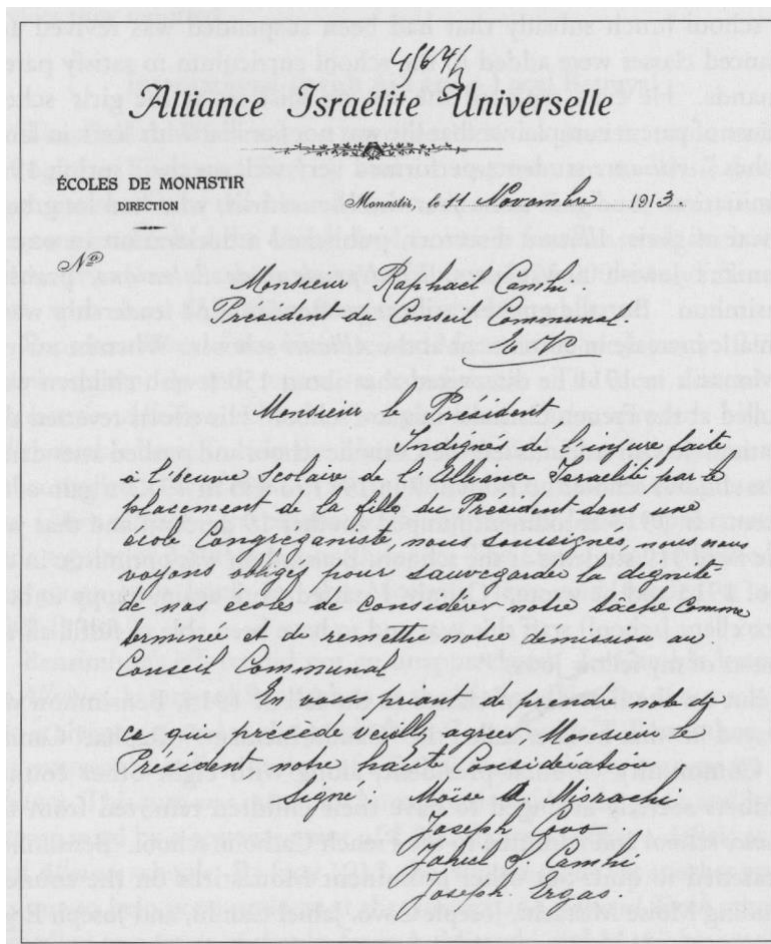 Alliance Israélite Universelle
ÉCOLES DE MONASTIR
DIRECTION
Monastir, le 11 Novembre 1913.
No
Monsieur Raphaël Camhi
Président du Conseil Communal
E/V
Monsieur le Président
Indignés de l'injure faite
à l'œuvre scolaire de l'Alliance Israélite par le
placement de la fille du Président dans une
école Congréganiste nous soussignés, nous nous
voyons obligés pour sauvegarder la dignité
de nos écoles de considérer notre tâche comme
terminée et de remettre notre démission au
Conseil Communal
En vous priant de prendre note de
ce qui précède veuillez agréer, Monsieur le
Président notre haute Considération
Signé: Moïse A. Misrachi
Joseph Covo
Jahiel J. Camhi
Joseph Ergas